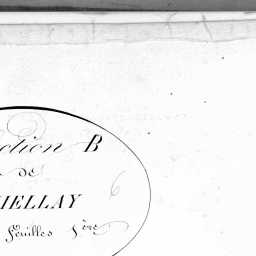 ction B
de
HELLAY
6
feuilles 1ère